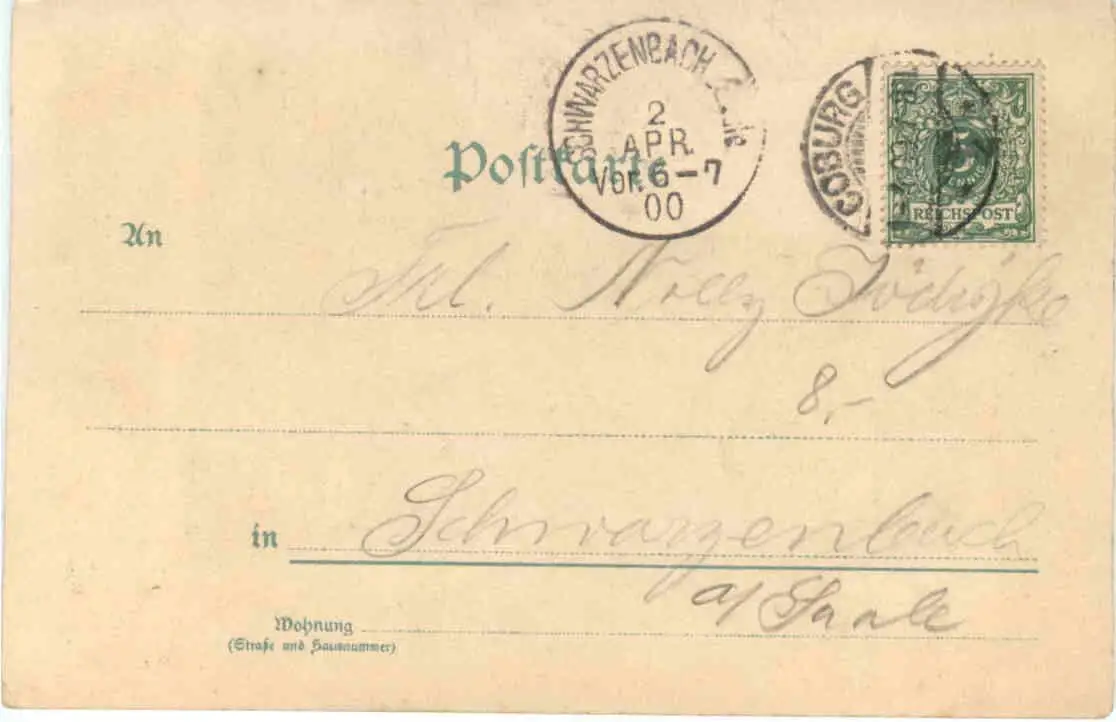 SCHWARZENBACH
2
APR.
Vor. 6-7
00
COBURG
5
REICHSPOST
Postkarte
An
Frl. Nelly
8,-
in Schwarzenbach
a/ Saale
Wohnung
(Straße und Hausnummer)